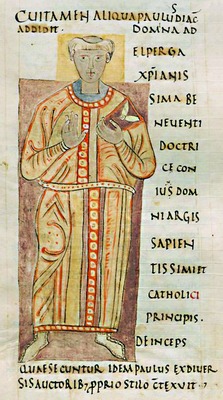 CUITAMEN ALIQUA PAULUS DIAC
ADDIDIT. DOMINA AD
ELPERGA
XPIANIS
SIMA BE
NEUENTI
DOCTRI
CE CON
IUS DOM
NI ARGIS
SAPIEN
TISSIMI ET
CATHOLICI
PRINCIPIS.
DEINCEPS
QUAESECUNTUR IDEM PAULUS EX DIUER
SIS AUCTORIB; PPRIO STILO CTEXUIT